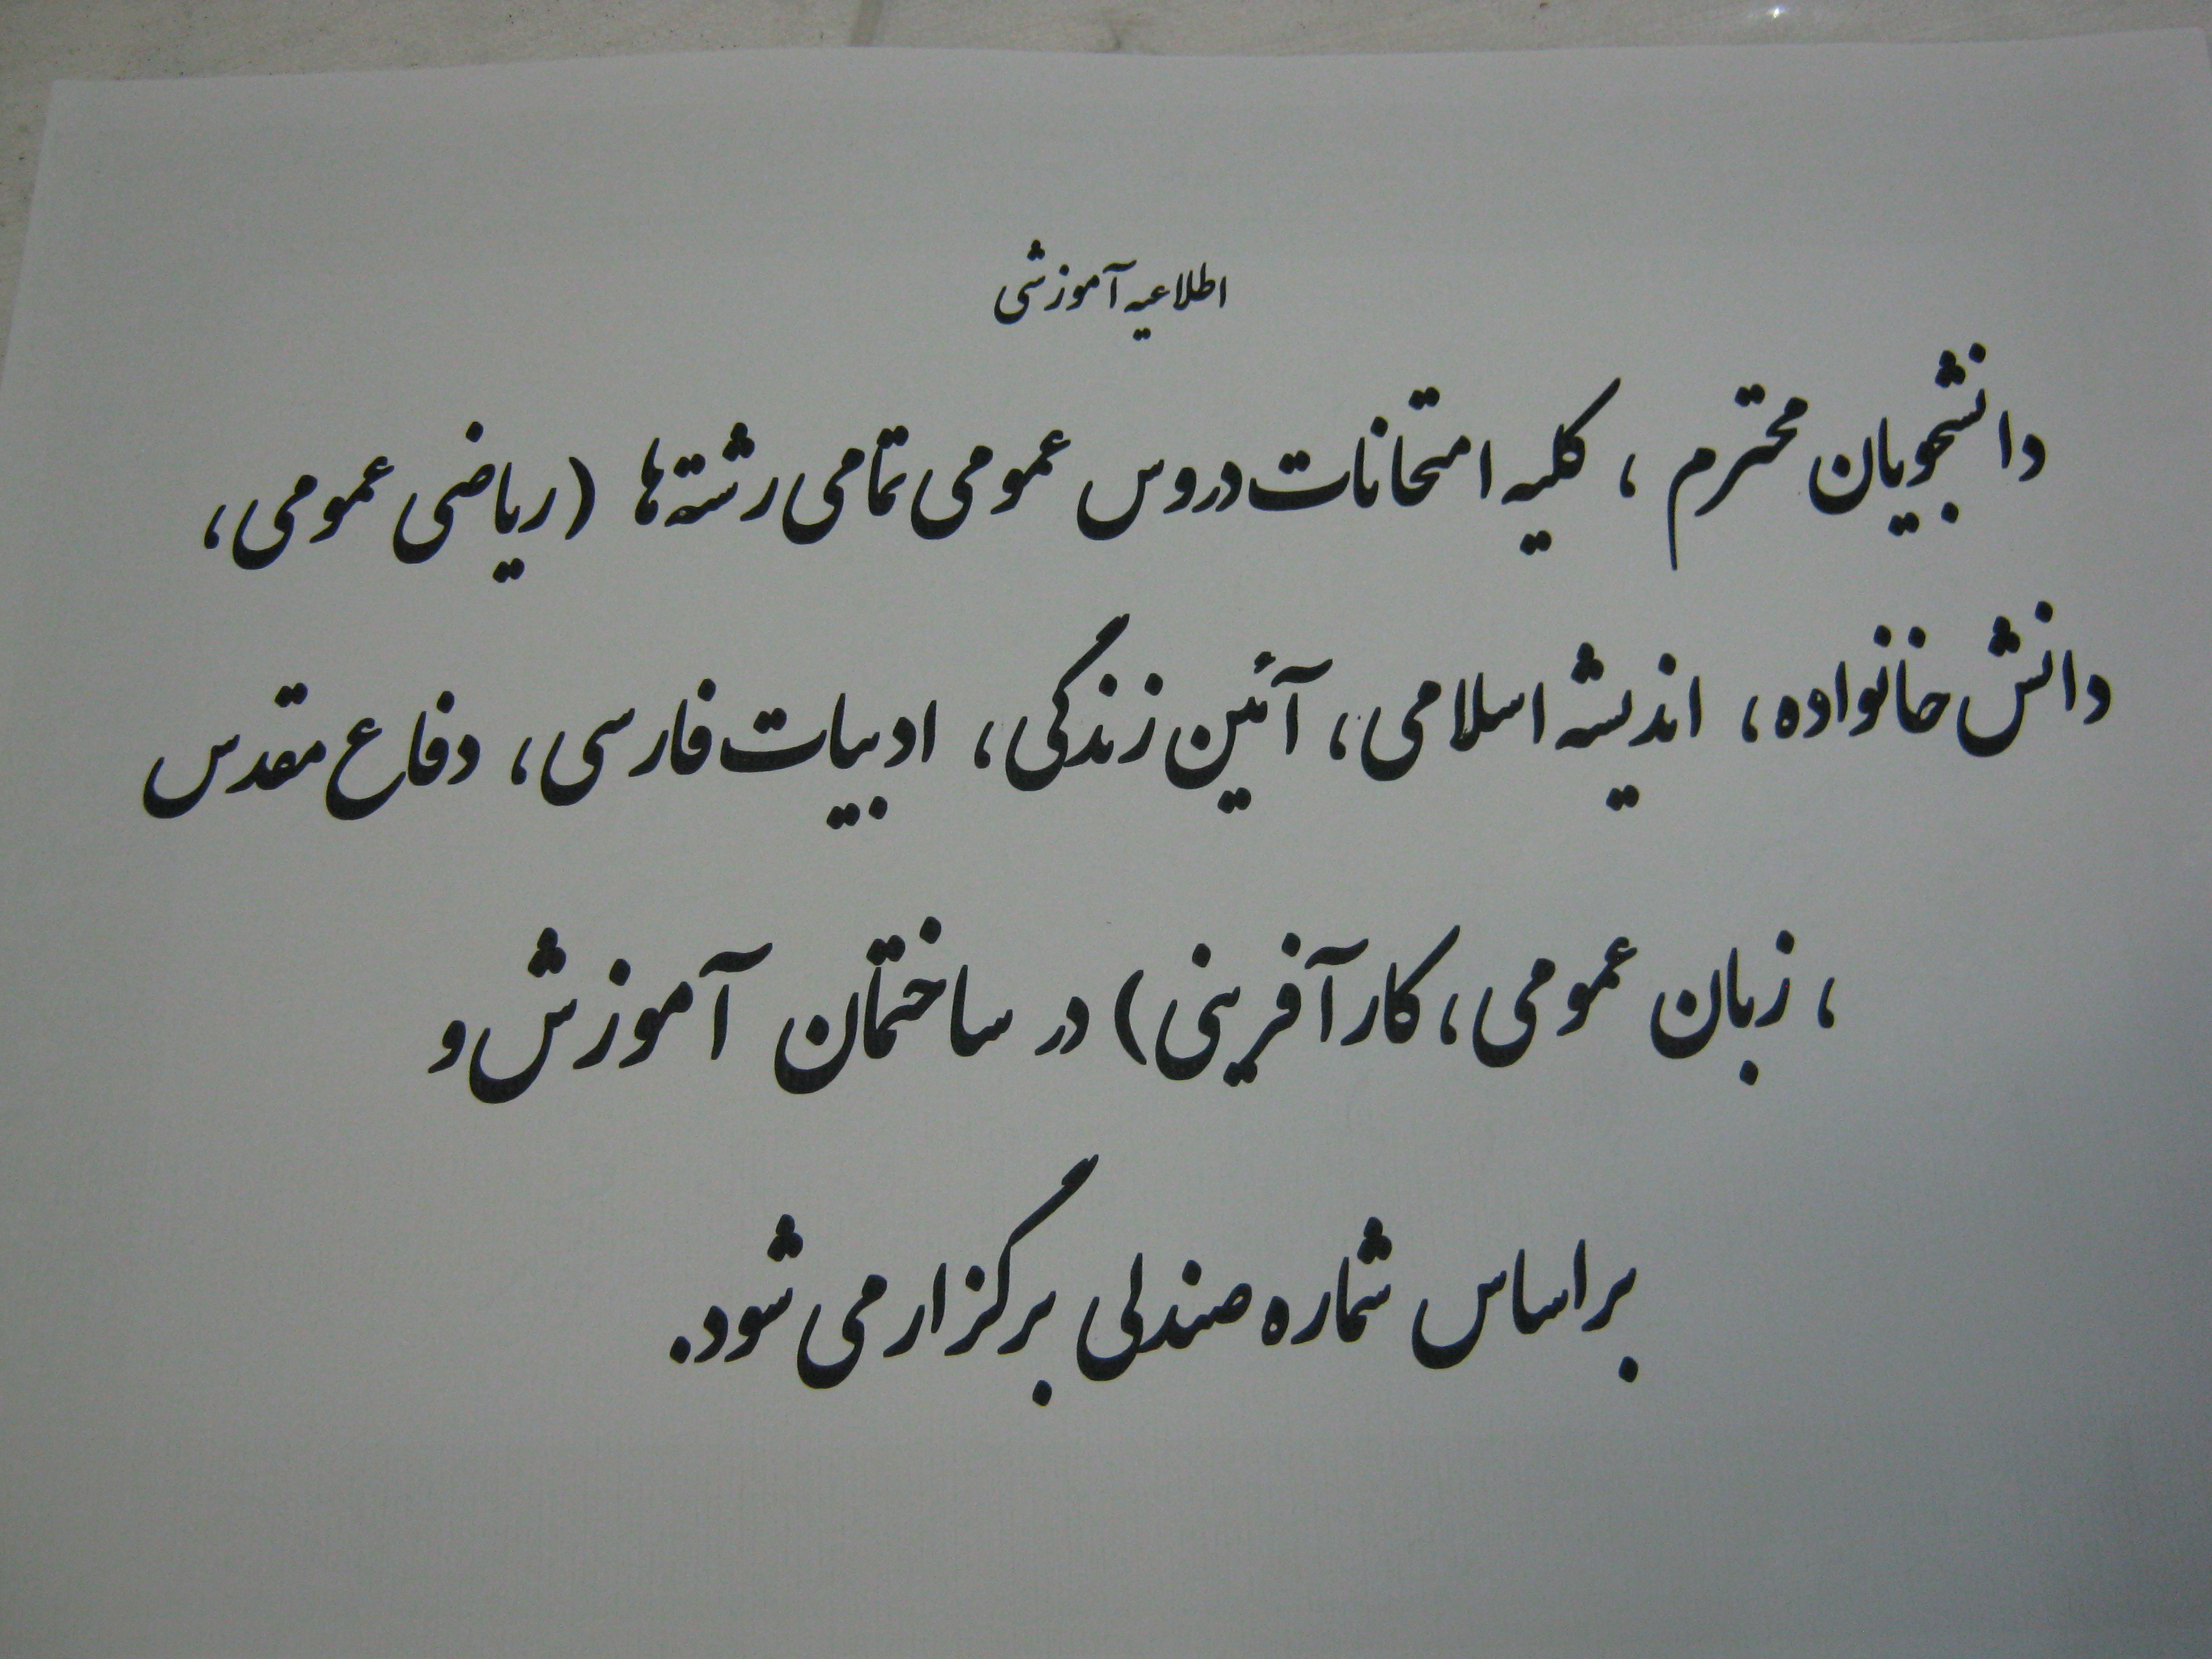 اطلاعیه آموزشی
دانشجویان محترم ، کلیه امتحانات دروس عمومی تمامی رشته ها (ریاضی عمومی،
دانش خانواده، اندیشه اسلامی، آئین زندگی، ادبیات فارسی، دفاع مقدس
، زبان عمومی، کارآفرینی) در ساختمان آموزش و
براساس شماره صندلی برگزار می شود.